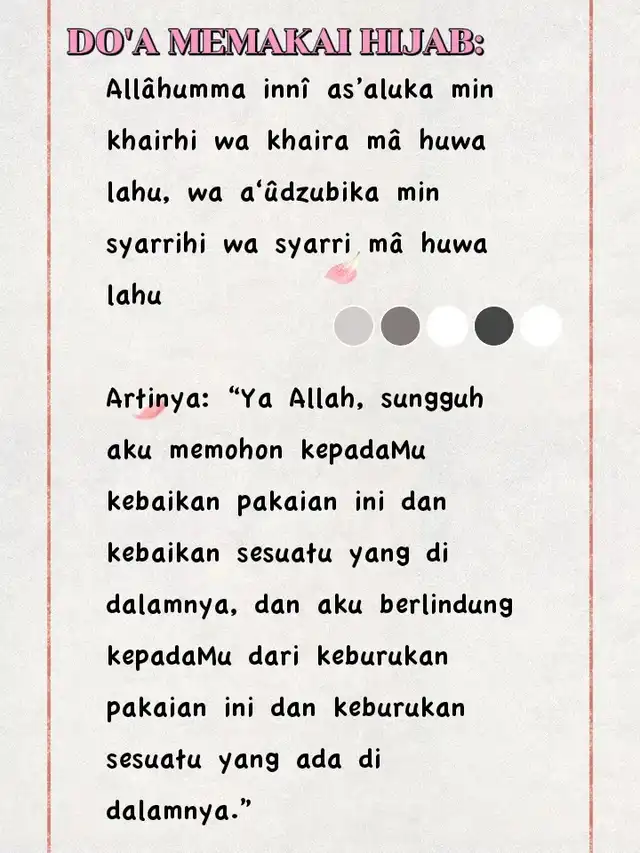 DO'A MEMAKAI HIJAB:
Allâhumma innî as’aluka min
khairhi wa khaira mâ huwa
lahu, wa a‘ûdzubika min
syarrihi wa syarri mâ huwa
lahu
Artinya: “Ya Allah, sungguh
aku memohon kepadaMu
kebaikan pakaian ini dan
kebaikan sesuatu yang di
dalamnya, dan aku berlindung
kepadaMu dari keburukan
pakaian ini dan keburukan
sesuatu yang ada di
dalamnya.”